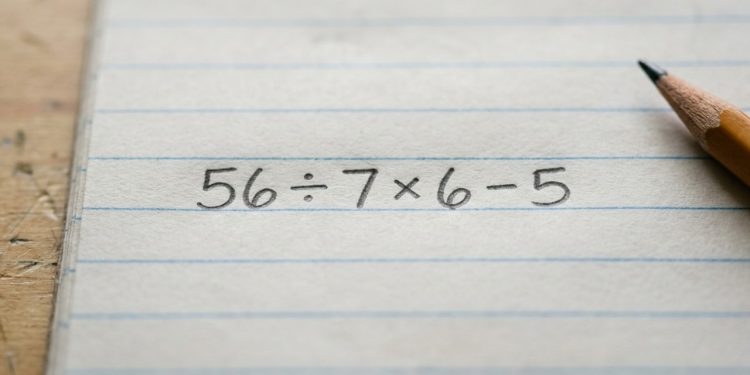 56÷7×6-5